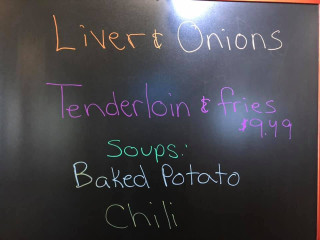 Liver & Onions
Tenderloin & fries
$9.49
Soups:
Baked Potato
Chili